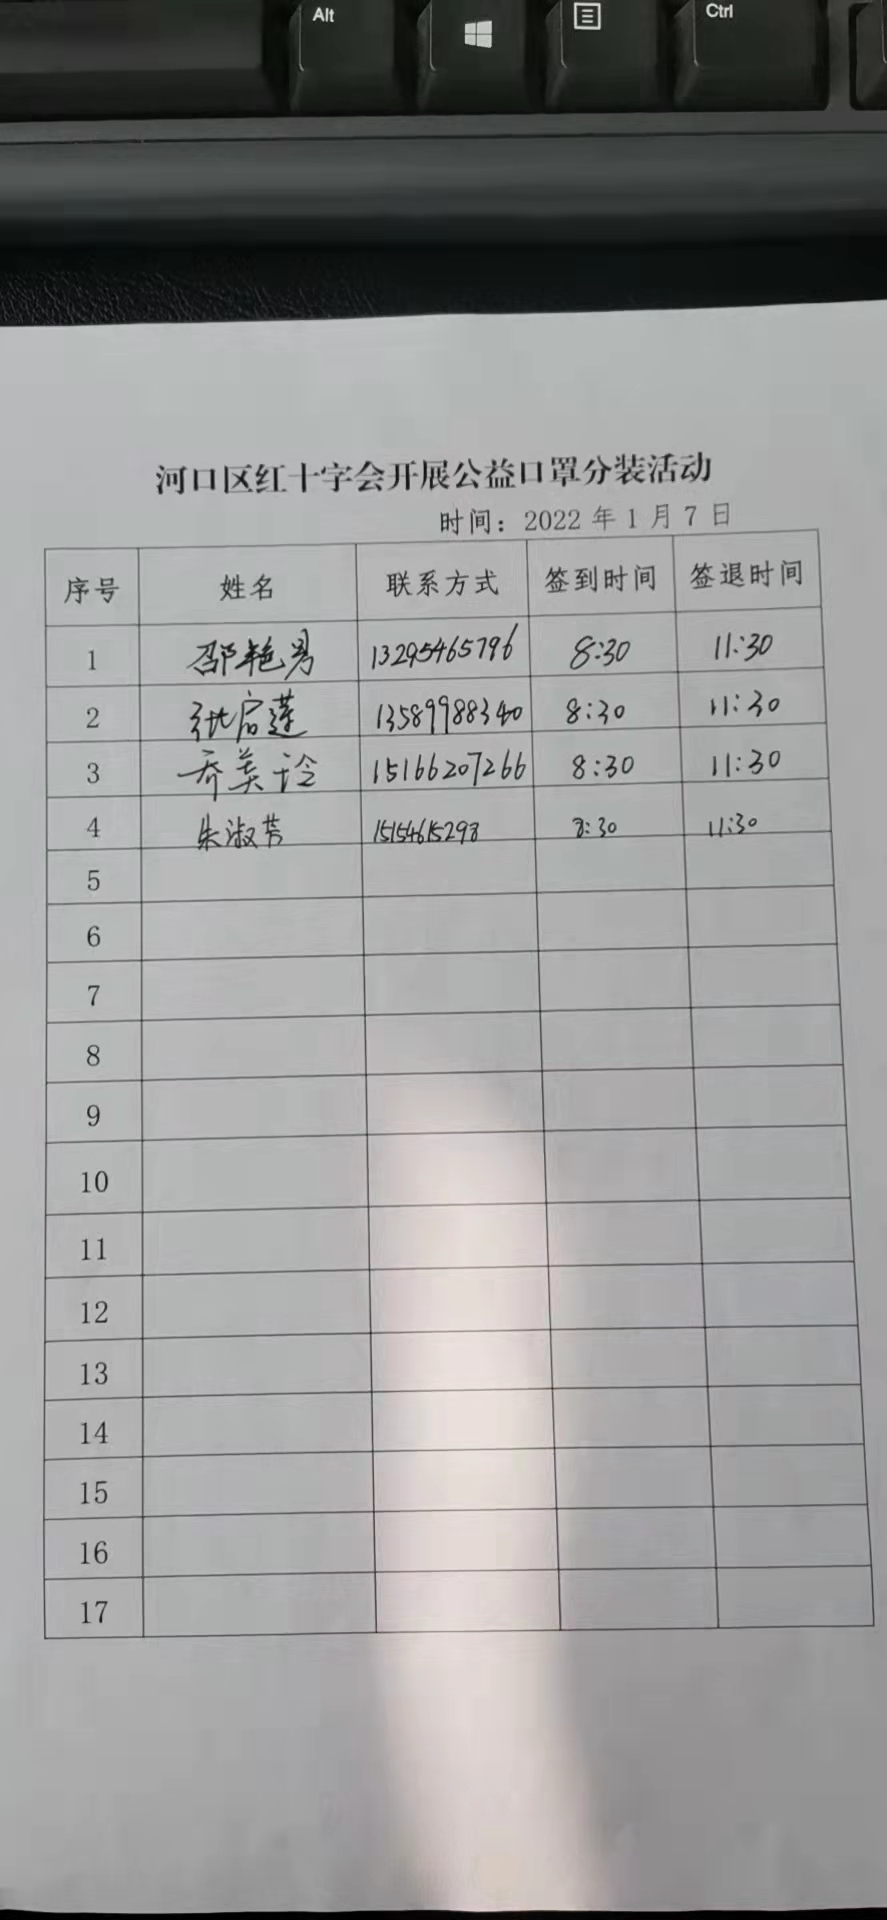 Alt
Ctrl
河口区红十字会开展公益口罩分装活动
时间：2022年1月7日
序号 姓名 联系方式 签到时间 签退时间
1 邵艳男 13295465796 8:30 11:30
2 张启莲 13589988340 8:30 11:30
3 乔美玲 15166207266 8:30 11:30
4 朱淑芳 15154615298 8:30 11:30
5
6
7
8
9
10
11
12
13
14
15
16
17